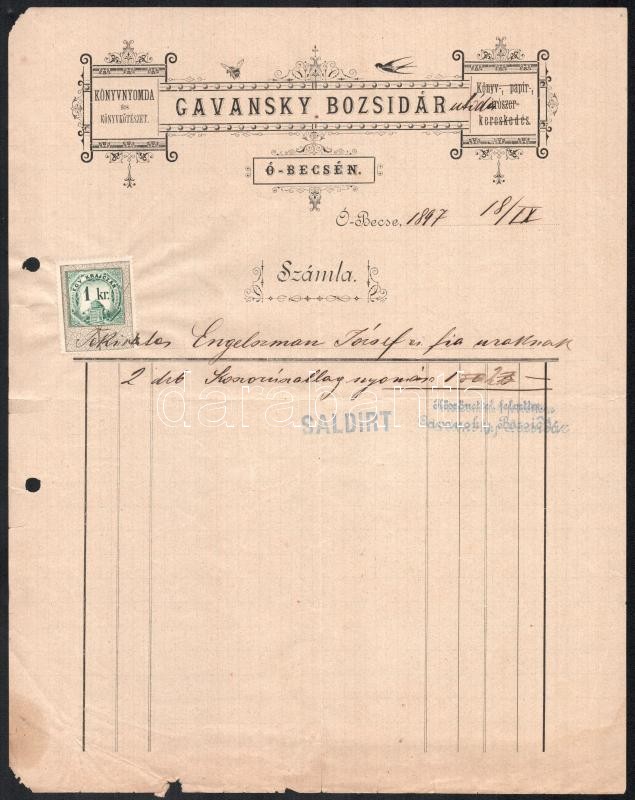 KÖNYVNYOMDA
ÉS
KÖNYVKÖTÉSZET.
GAVANSKY BOZSIDÁR utóda
Könyv-, papir-,
irószer-
kereskedés.
Ó-BECSÉN.
Ó-Becse, 1897 18/IX
Számla.
EGY KRAJCZÁR
1 kr.
Tekintetes Engelszman József és fia uraknak
2 drb Koszorúszallag nyomás 1 50
SALDIRT
Köszönettel
Gavansky Bozsidár
darabanth